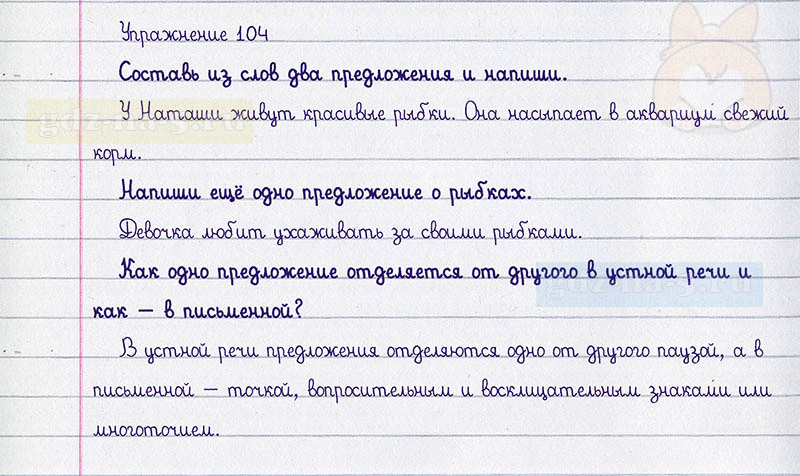 Упражнение 104
Составь из слов два предложения и напиши.
У Наташи живут красивые рыбки. Она насыпает в аквариум свежий
корм.
Напиши ещё одно предложение о рыбках.
Девочка любит ухаживать за своими рыбками.
Как одно предложение отделяется от другого в устной речи и
как – в письменной?
В устной речи предложения отделяются одно от другого паузой, а в
письменной – точкой, вопросительным и восклицательным знаками или
многоточием.
gdz-na-5.ru
gdz-na-5.ru